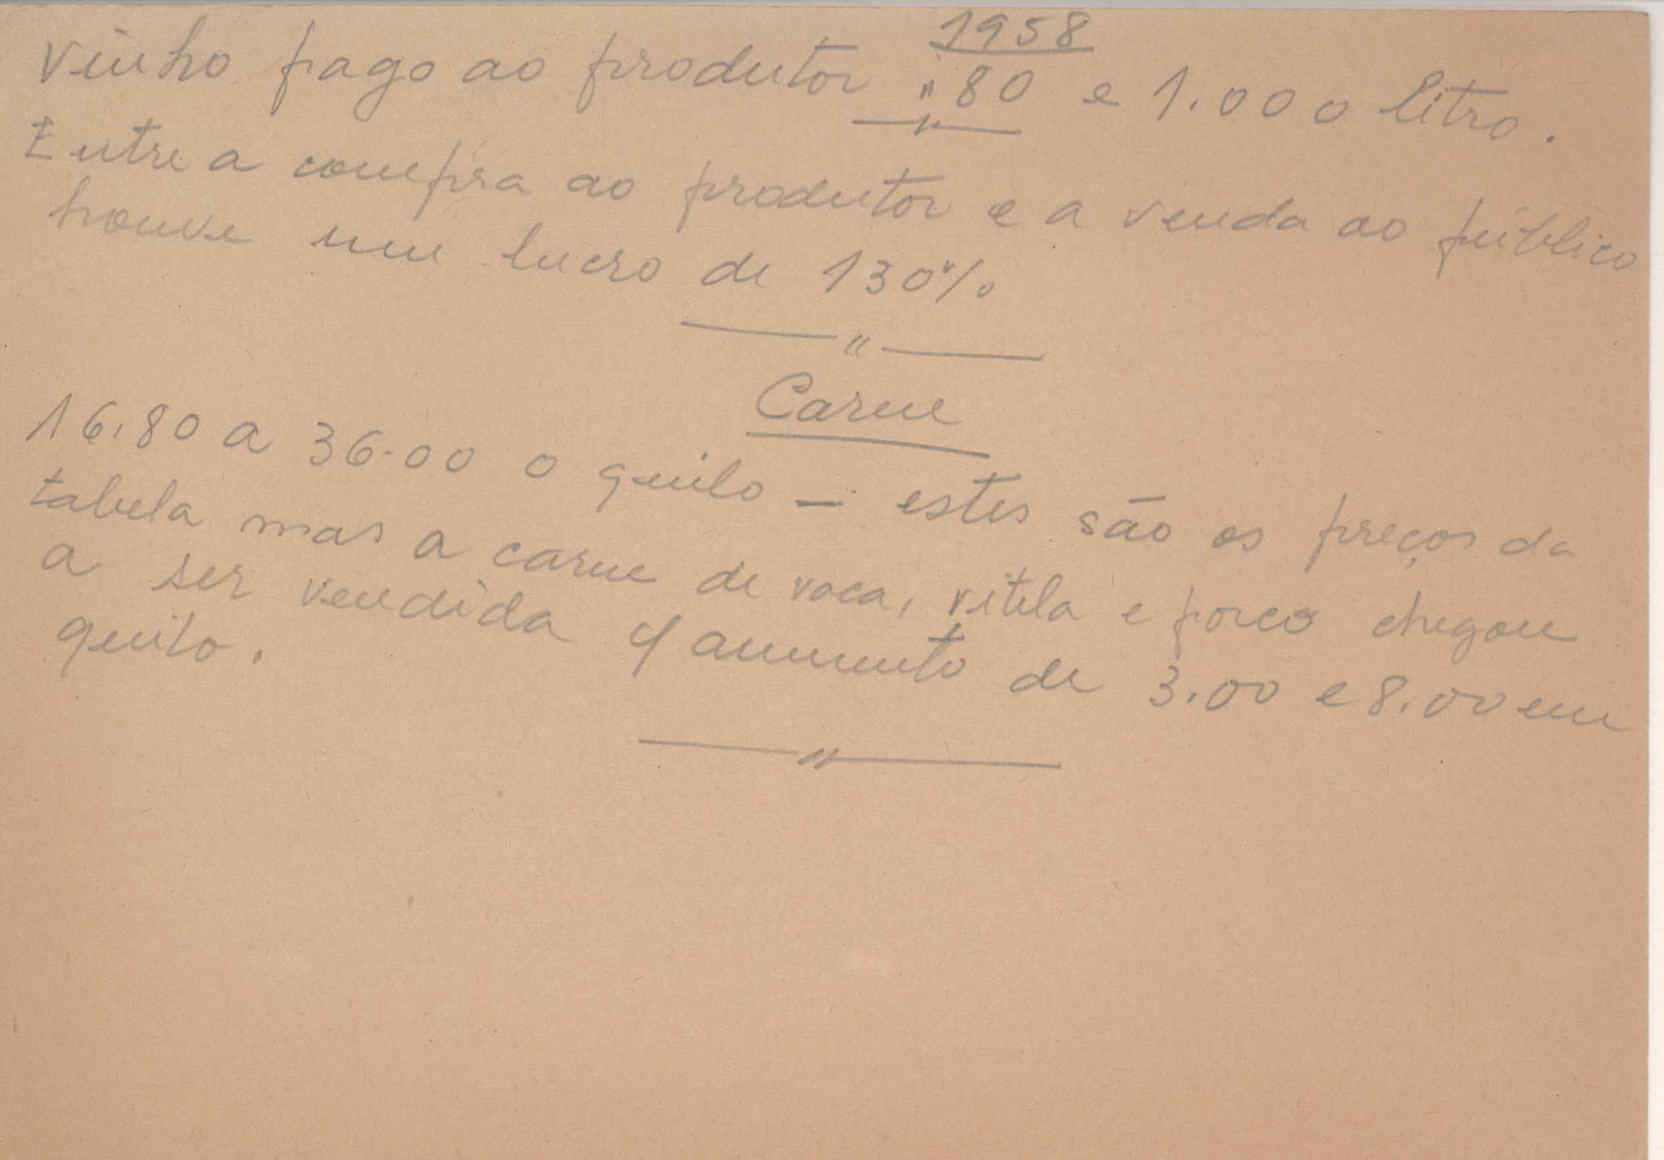 1958
Vinho pago ao produtor "80 e 1.00 o litro.
Entre a compra ao produtor e a venda ao público
houve um lucro de 130%
Carne
16.80 a 36.00 o quilo — estes são os preços da
tabela mas a carne de vaca, vitela e porco chegou
a ser vendida c/ aumento de 3.00 e 8.00 em
quilo.